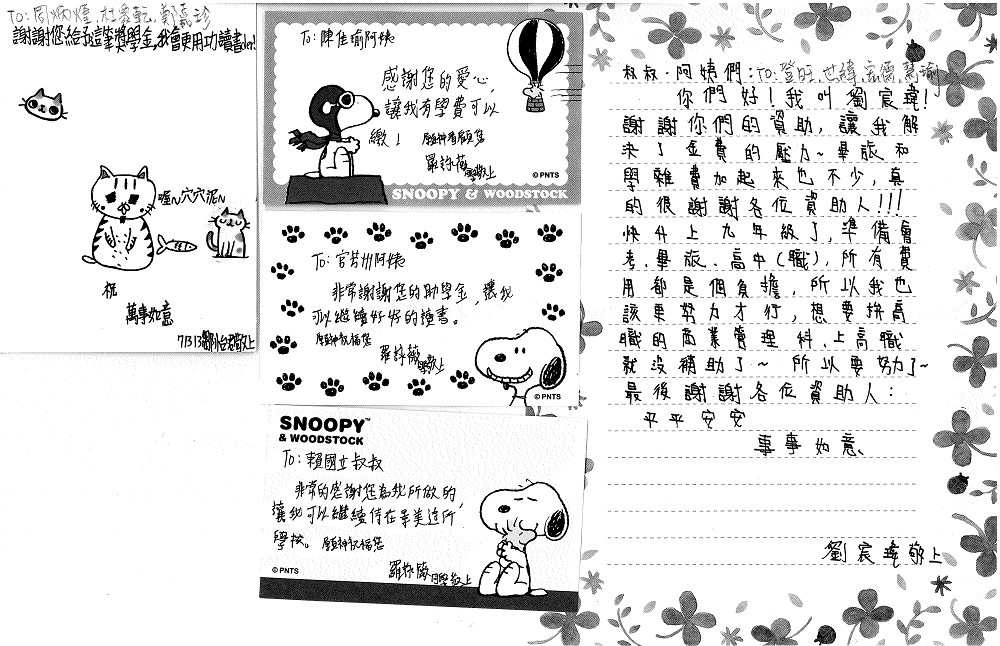 To: 周炳煌, 杜易軒, 鄭嘉珍
謝謝您給我這筆獎學金,我會更用功讀書der!
喔~穴穴泥~
祝
萬事如意
71313 敬上
To: 陳佳瑜阿姨
感謝您的愛心,
讓我有學費可以
繳! 願神看顧您
羅詩薇 敬上
© PNTS
SNOOPY & WOODSTOCK
To: 官芳州阿姨
非常謝謝您的助學金, 讓我
可以繼續好好的讀書。
願神祝福您
羅詩薇 敬上
© PNTS
SNOOPY™
& WOODSTOCK
To: 賴國立叔叔
非常的感謝您為我所做的,
讓我可以繼續待在美美這所
學校。 願神祝福您
羅詩薇 同學敬上
© PNTS
叔叔、阿姨們: To: 登旺、世緯、
你們好!我叫劉宸瑋!
謝謝你們的資助, 讓我解
決了金費的壓力~ 畢旅和
學雜費加起來也不少, 真
的很謝謝各位資助人!!!
快升上九年級了, 準備會
考、畢旅、高中(職), 所有費
用都是個負擔, 所以我也
該更努力才行, 想要拚高
職的商業管理科, 上高職
就沒補助了~ 所以要努力了~
最後謝謝各位資助人:
平平安安
事事如意、
劉宸瑋敬上